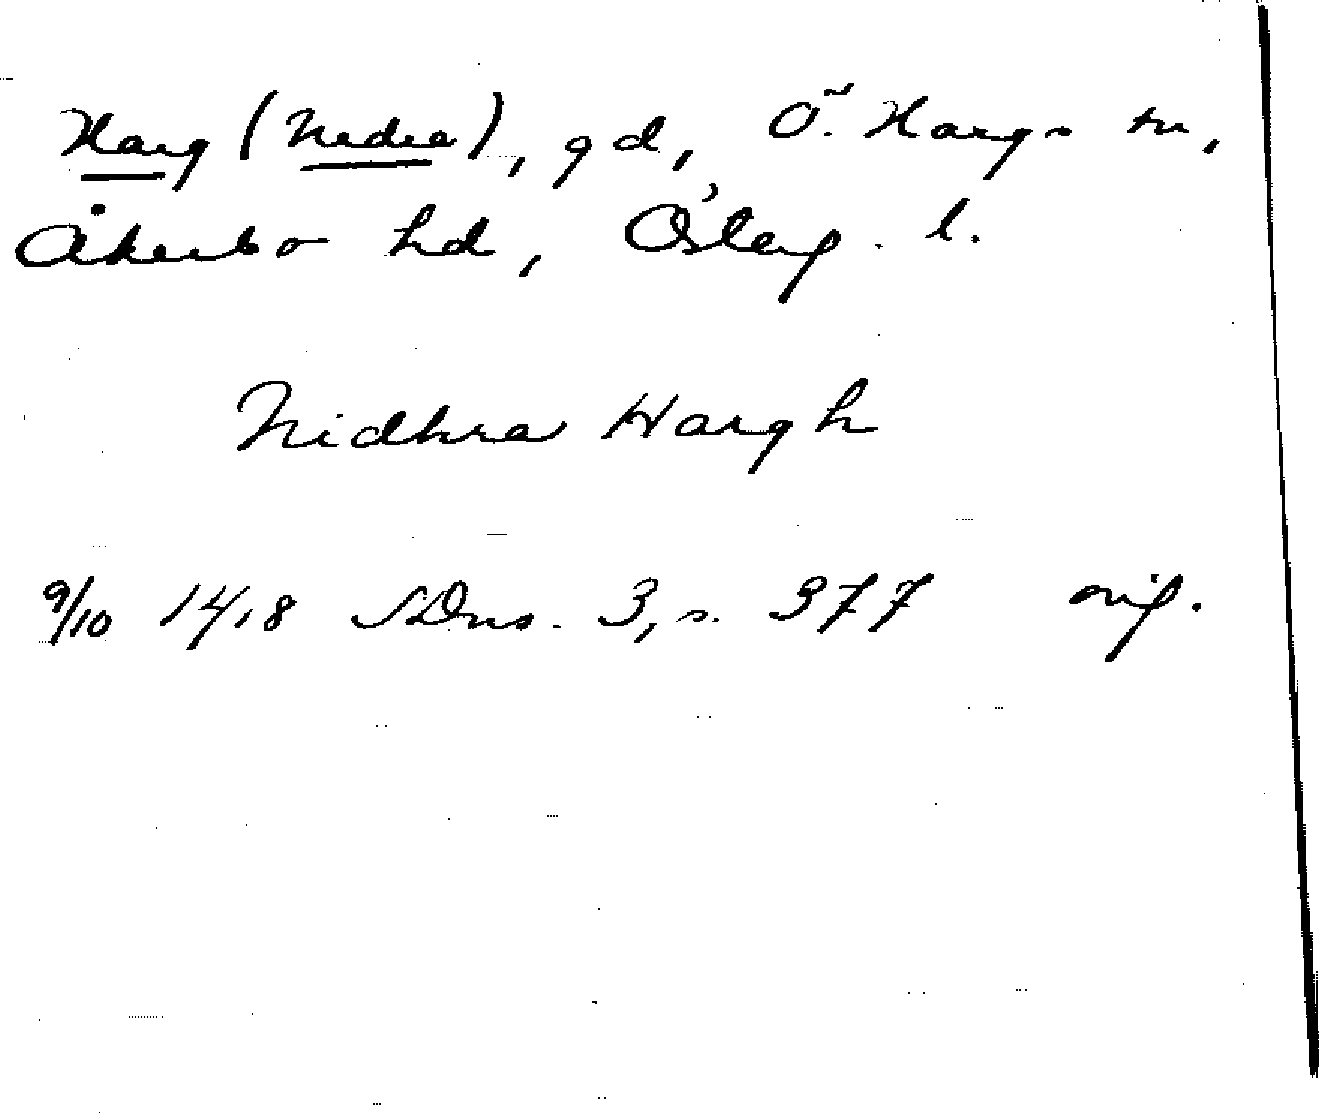 Harg (Nedra), gd, Ö. Hargs sn,
Åkerbo hd, Österg. l.
Nidhra Hargh
9/10 1418 SDns. 3, s. 377 orig.